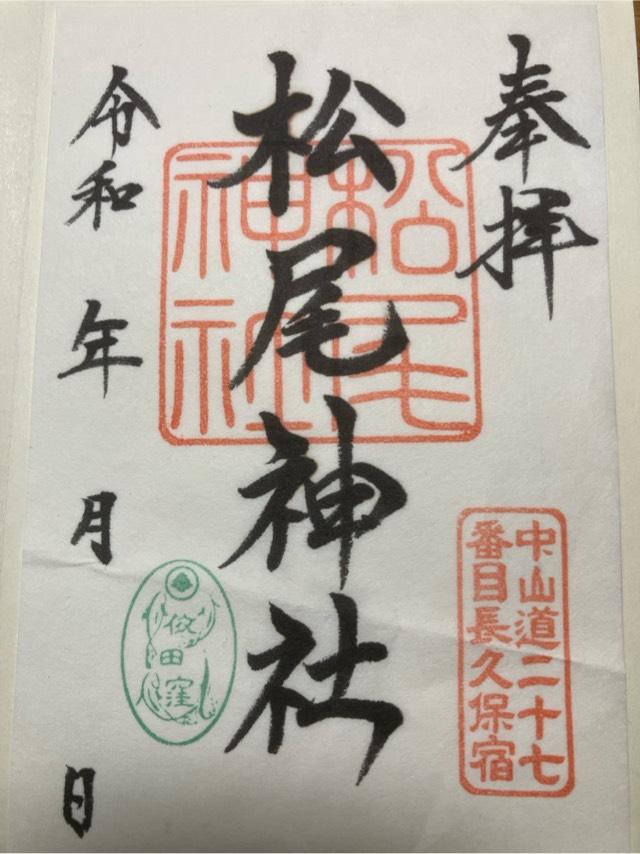 奉拝
中山道二十七
番目長久保宿
松尾神社
松尾
神社
令和 年 月 日
依田窪